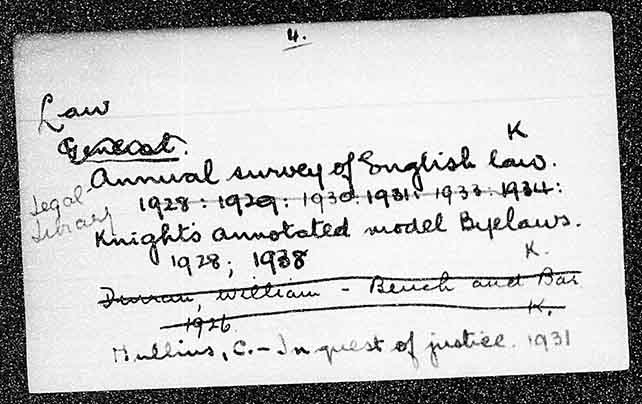 4.
Law
General.
K
Annual survey of English law.
Legal Library
1928: 1929: 1930: 1931: 1933: 1934:
Knight's annotated model Byelaws.
1928; 1938
K.
Durran, William - Bench and Bar
1926.
K.
Mullins, C. - In quest of justice. 1931